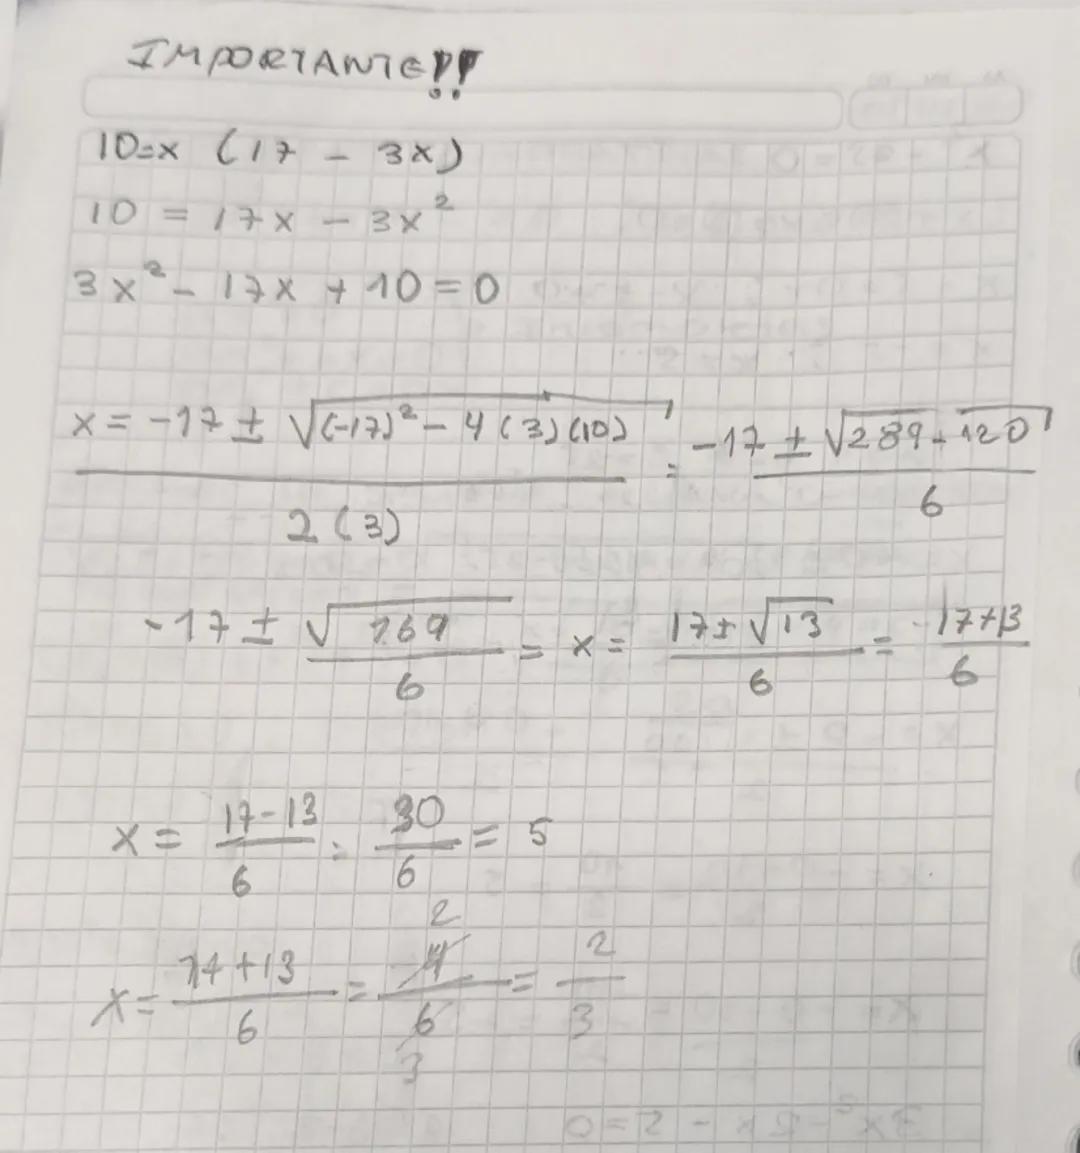 IMPORTANTE!!
10=x (17 - 3x)
10 = 17x - 3x²
3x² - 17x + 10 = 0
x = -17 ± √(-17)² - 4(3)(10) / 2(3) = -17 ± √289 - 120 / 6
-17 ± √169 / 6 = x = 17 ± √13 / 6 = -17+13 / 6
x = 17-13 / 6 = 30 / 6 = 5
x = 17+13 / 6 = 4 / 6 = 2 / 3